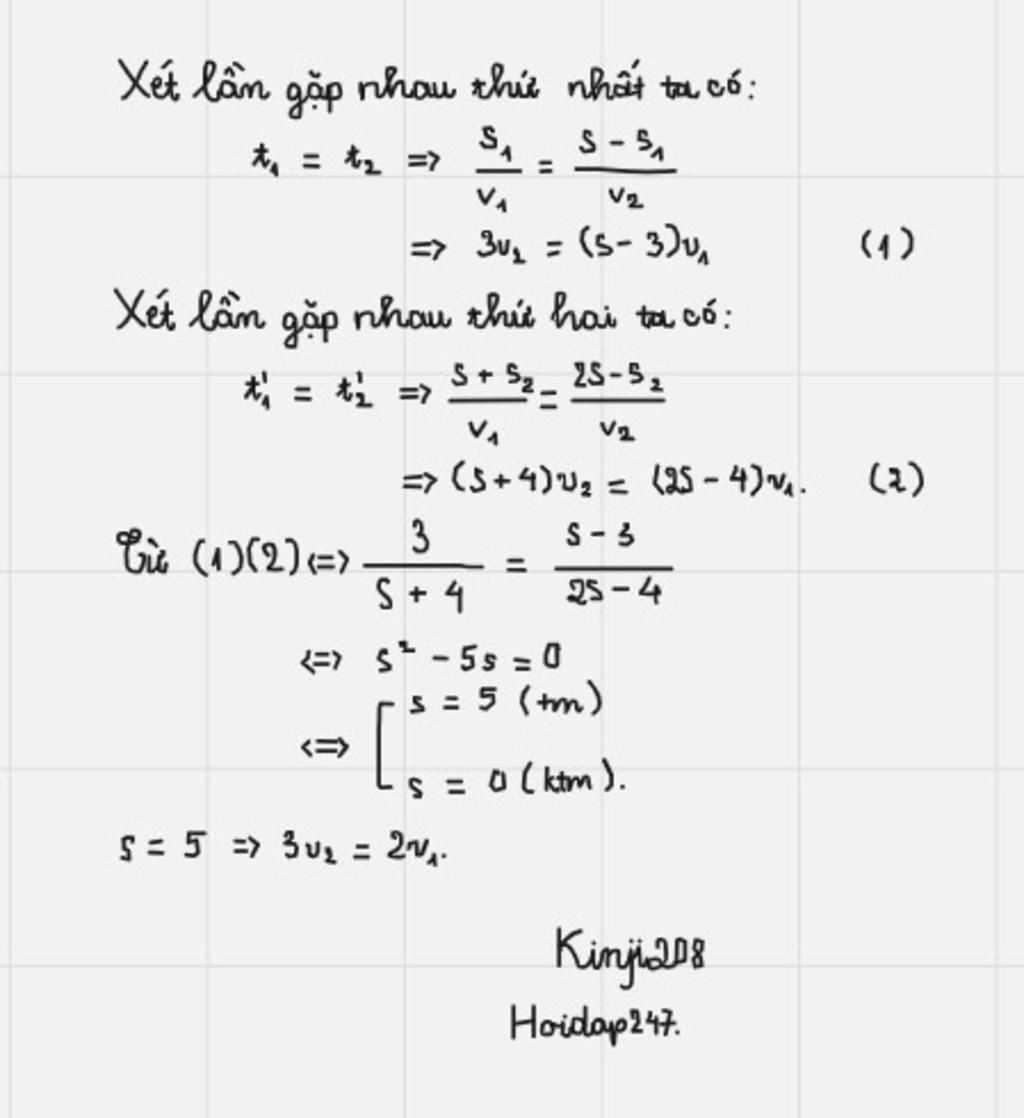 Xét lần gặp nhau thứ nhất ta có:
t₁ = t₂ => s₁/v₁ = s - s₁/v₂
=> 3v₂ = (s - 3)v₁ (1)
Xét lần gặp nhau thứ hai ta có:
t₁' = t₂' => s + s₂/v₁ = 2s - s₂/v₂
=> (s + 4)v₂ = (2s - 4)v₁. (2)
Từ (1)(2) <=> 3/s + 4 = s - 3/2s - 4
<=> s² - 5s = 0
<=> [ s = 5 (tm)
s = 0 (ktm).
s = 5 => 3v₂ = 2v₁.
Kinji208
Hoidap247.